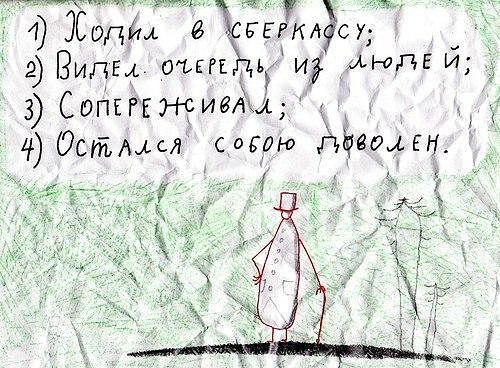 1) Ходил в сберкассу;
2) Видел очередь из людей;
3) Сопереживал;
4) Остался собою доволен.